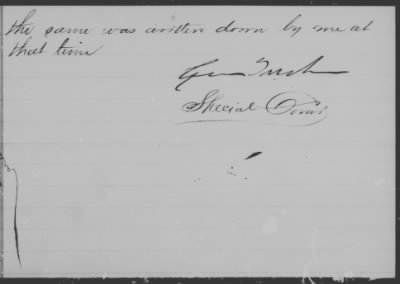 the same was written down by me at
that time
Special Com'r